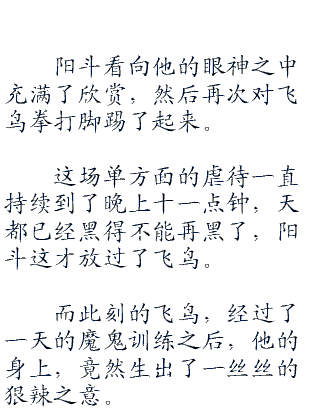 阳斗看向他的眼神之中
充满了欣赏，然后再次对飞
鸟拳打脚踢了起来。
这场单方面的虐待一直
持续到了晚上十一点钟，天
都已经黑得不能再黑了，阳
斗这才放过了飞鸟。
而此刻的飞鸟，经过了
一天的魔鬼训练之后，他的
身上，竟然生出了一丝丝的
狠辣之意。